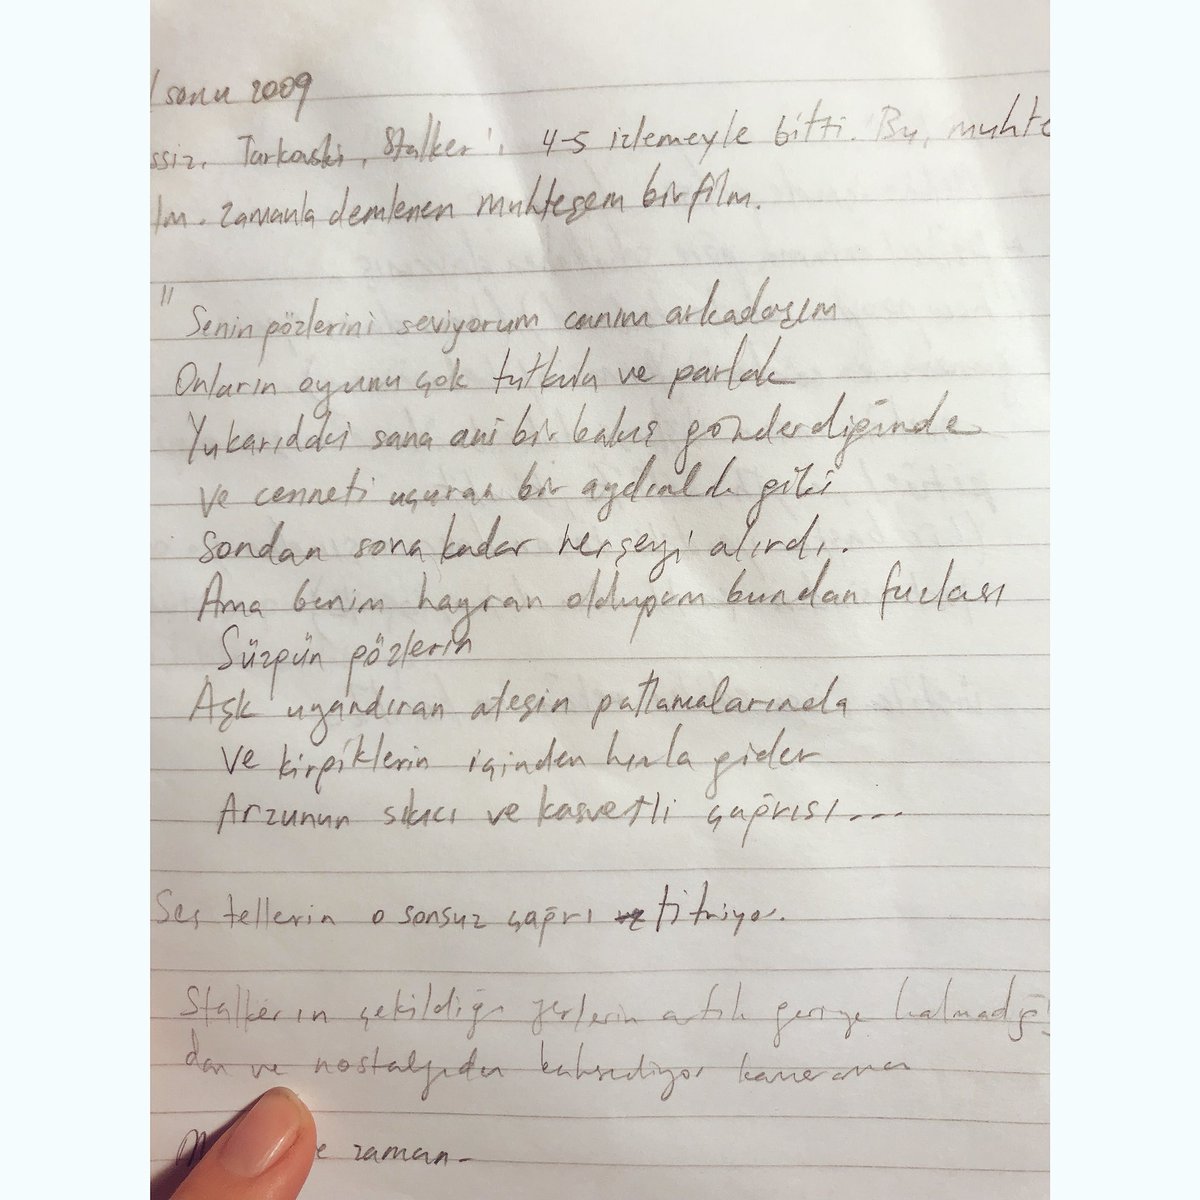 sonu 2009
ssiz. Tarkovski, Stalker'ı 4-5 izlemeyle bitti. Bu, muhte
lm. Zamanla demlenen muhteşem bir film.
"Senin gözlerini seviyorum canım arkadaşım
Onların oyunu çok tutkulu ve parlak
Yukarıdaki sana ani bir bakış gönderdiğinde
ve cenneti uçuran bir aydınlık gibi
sondan sona kadar herşeyi alırdı.
Ama benim hayran olduğum bundan fazlası
Süzgün gözlerin
Aşk uyandıran ateşin patlamalarında
ve kirpiklerin içinden hızla gider
Arzunun sıkıcı ve kasvetli çağrısı...
Ses tellerin o sonsuz çağrı titriyor.
Stalkerın çekildiği yerlerin artık geriye kalmadığı
dan ve nostalgiden bahsediyor kameraman
zaman-